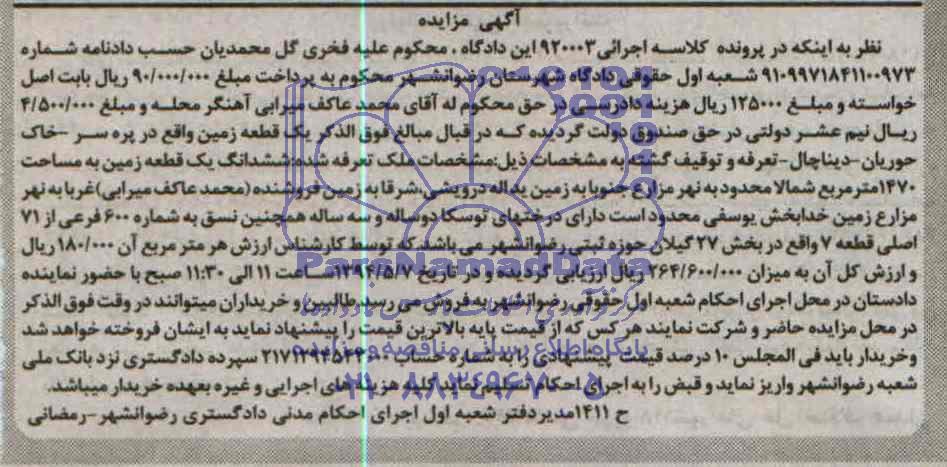 آگهی مزایده
نظر به اینکه در پرونده کلاسه اجرائی ۹۲۰۰۰۳ این دادگاه ، محکوم علیه فخری گل محمدیان حسب دادنامه شماره
۹۱۰۹۹۷۱۸۴۱۱۰۰۹۷۳ شعبه اول حقوقی دادگاه شهرستان رضوانشهر محکوم به پرداخت مبلغ ۹۰/۰۰۰/۰۰۰ ریال بابت اصل
خواسته و مبلغ ۱۲۵۰۰۰ ریال هزینه دادرسی در حق محکوم له آقای محمد عاکف میرابی آهنگر محله و مبلغ ۴/۵۰۰/۰۰۰
ریال نیم عشر دولتی در حق صندوق دولت گردیده که در قبال مبالغ فوق الذکر یک قطعه زمین واقع در پره سر -خاک
حوریان-دیناچال-تعرفه و توقیف گشته به مشخصات ذیل:مشخصات ملک تعرفه شده:ششدانگ یک قطعه زمین به مساحت
۱۴۷۰متر مربع شمالا محدود به نهر مزارع جنوبا به زمین یداله درویشی شرقا به زمین فروشنده (محمد عاکف میرابی) غربا به نهر
مزارع زمین خدابخش یوسفی محدود است دارای درختهای توسکا دوساله و سه ساله همچنین نسق به شماره ۶۰۰ فرعی از ۷۱
اصلی قطعه ۷ واقع در بخش ۲۷ گیلان حوزه ثبتی رضوانشهر می باشد که توسط کارشناس ارزش هر متر مربع آن ۱۸۰/۰۰۰ ریال
و ارزش کل آن به میزان ۲۶۴/۶۰۰/۰۰۰ ریال ارزیابی گردیده و در تاریخ ۱۳۹۴/۵/۷ ساعت ۱۱ الی ۱۱:۳۰ صبح با حضور نماینده
دادستان در محل اجرای احکام شعبه اول حقوقی رضوانشهر به فروش می رسد طالبین و خریداران میتوانند در وقت فوق الذکر
در محل مزایده حاضر و شرکت نمایند هر کس که از قیمت پایه بالاترین قیمت را پیشنهاد نماید به ایشان فروخته خواهد شد
وخریدار باید فی المجلس ۱۰ درصد قیمت پیشنهادی را به شماره حساب سپرده دادگستری نزد بانک ملی
شعبه رضوانشهر واریز نماید و قبض را به اجرای احکام تسلیم نماید کلیه هزینه های اجرایی و غیره بعهده خریدار میباشد.
ح ۱۴۱۱ مدیر دفتر شعبه اول اجرای احکام مدنی دادگستری رضوانشهر-رمضانی
ParsNamadData
پایگاه اطلاع رسانی مناقصه و مزایده
۰۲۱-۸۸۳۴۹۶۷۰-۵